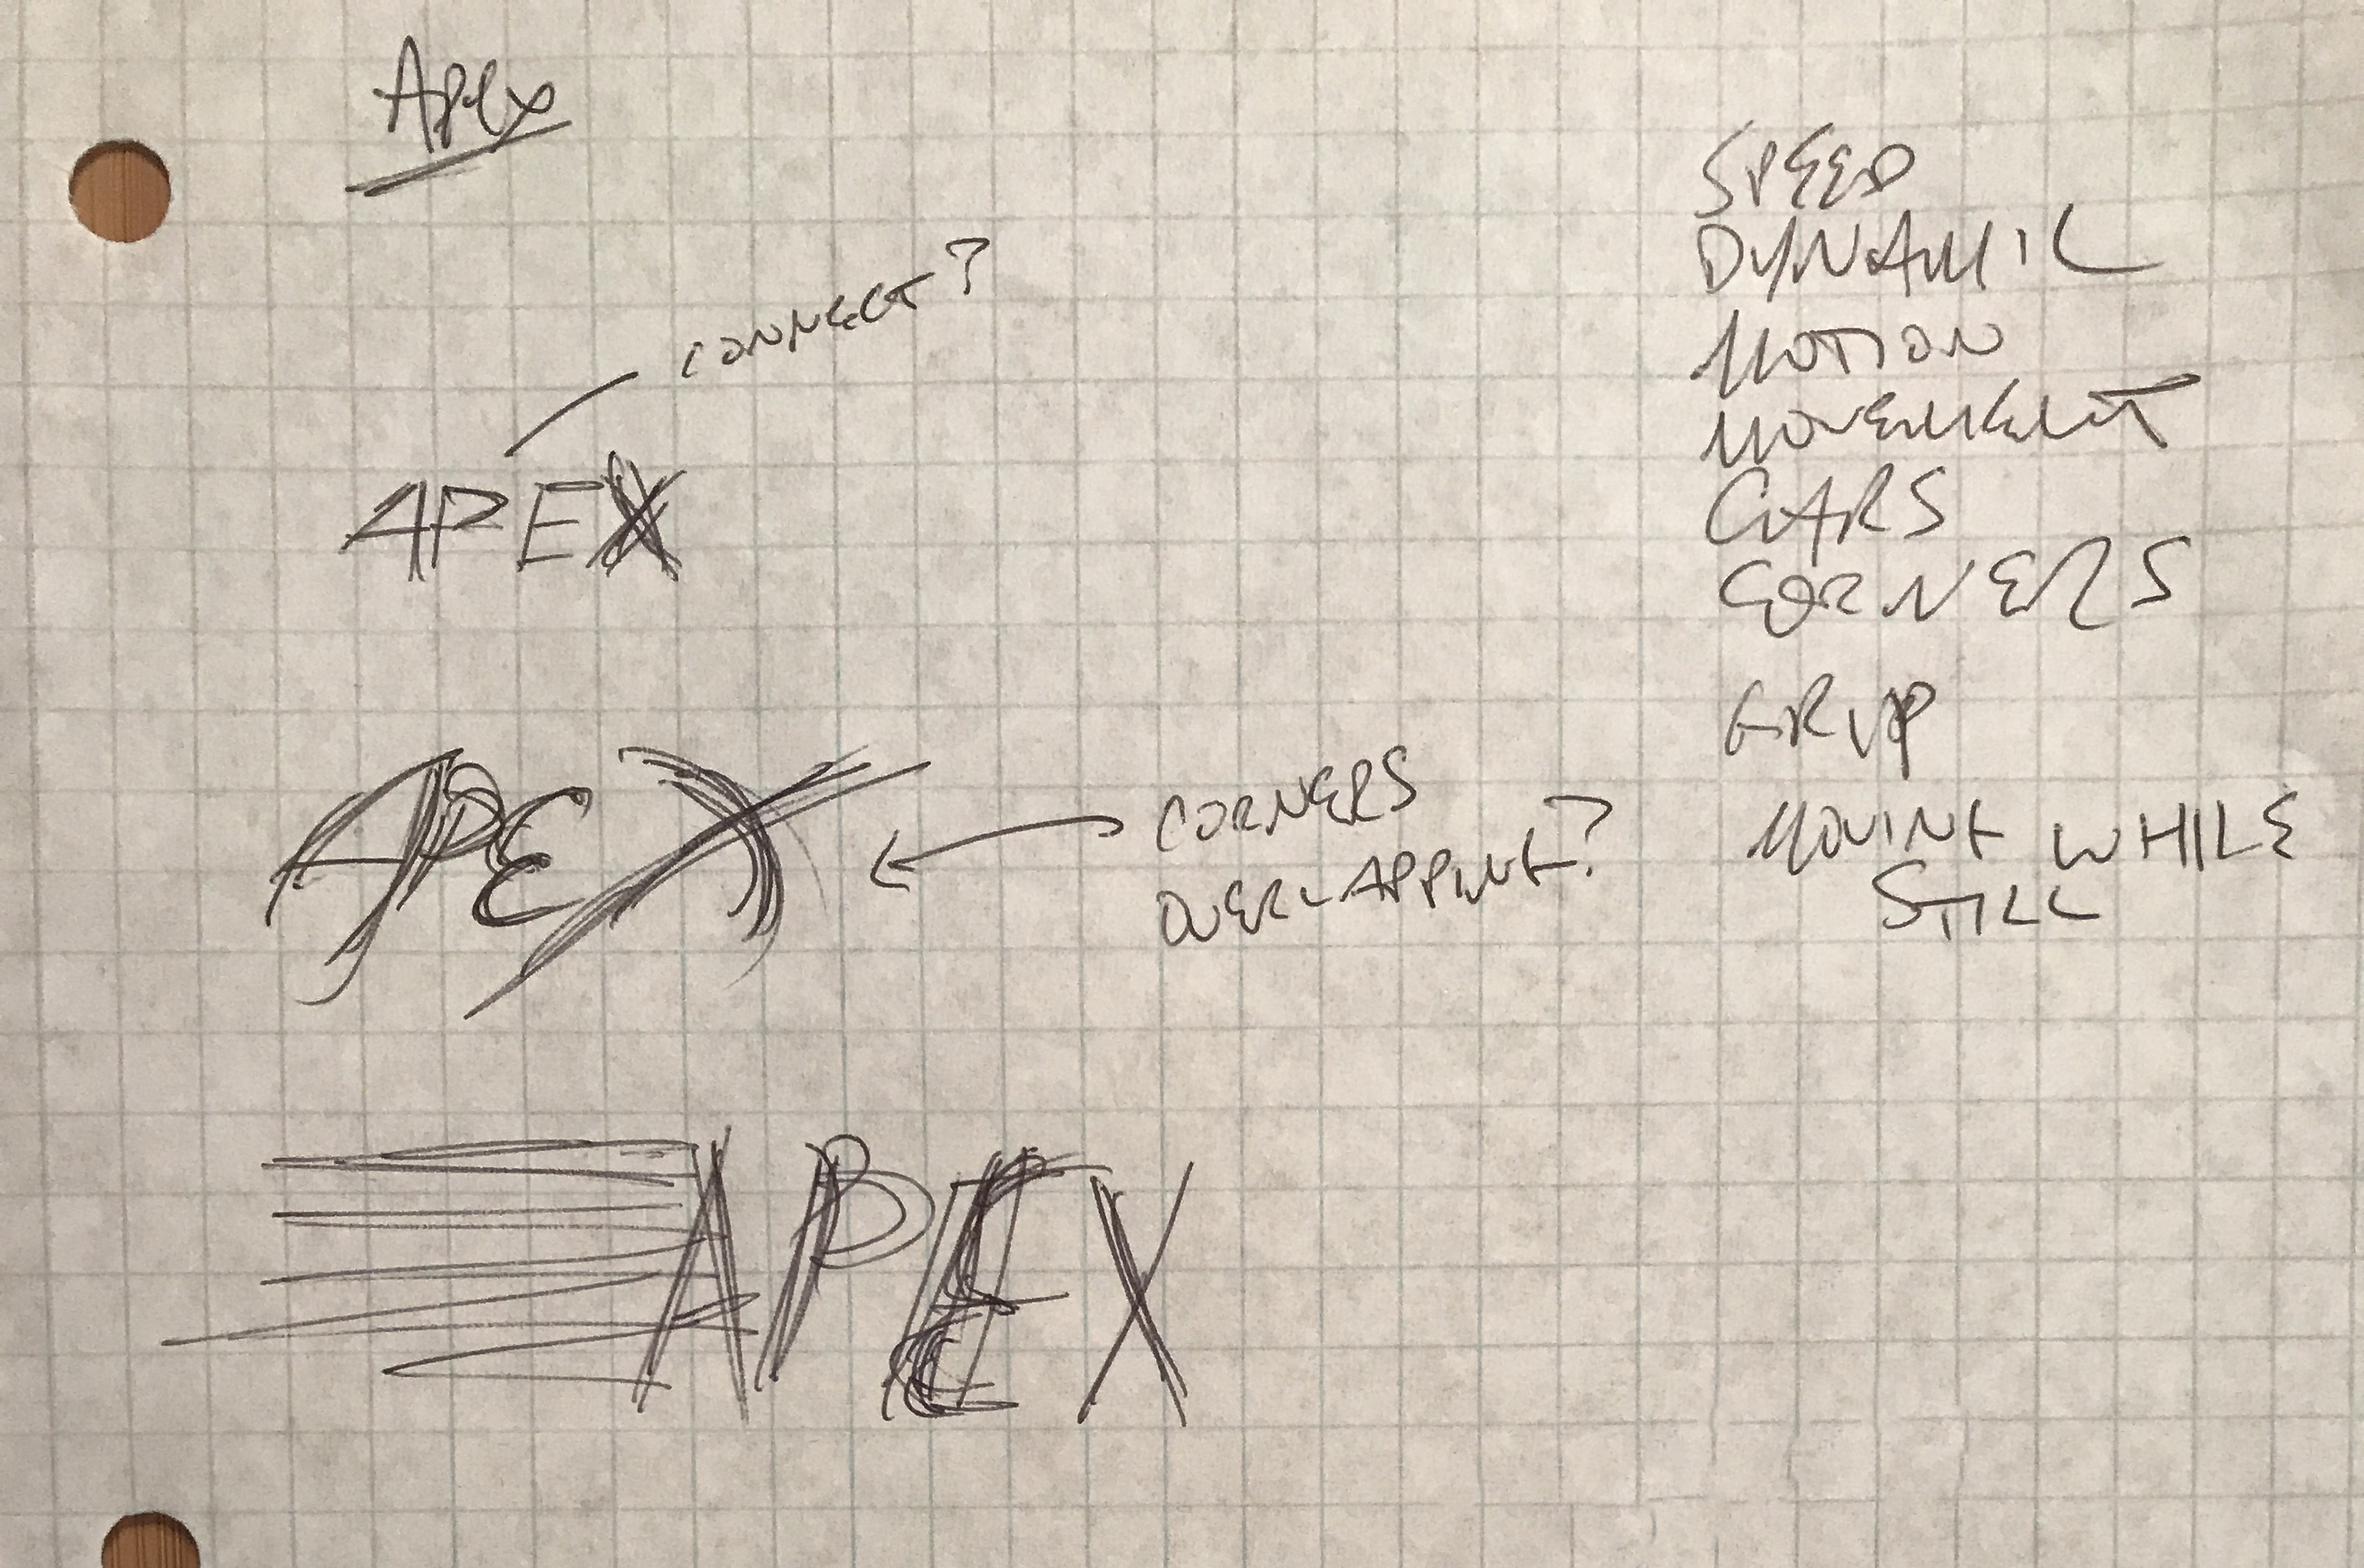 Apex
CONNECT?
APEX
APEX
CORNERS
OVERLAPPING?
APEX
SPEED
DYNAMIC
MOTION
MOVEMENT
CARS
CORNERS
GRIP
MOVING WHILE
STILL